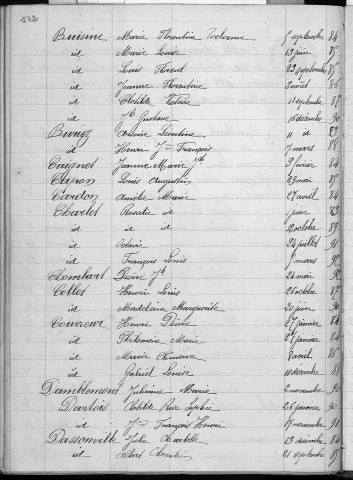 432
Buisine Marie Florentine 7 septembre 84
id Marie Louise 13 juin 85
id Louis Florent 23 septembre 85
id Jeanne Florentine 2 août 86
id Clotilde Victoire 11 septembre 87
id Jh Gustave 16 décembre 90
Léontine 11 id 83
id Henri Jn François 7 mars 86
Caignet Jeanne Marie Jh 9 février 84
Caron Louis Augustin 23 mai 85
Cardon Amélie Marie 27 avril 84
Charlet Rosalie id 1 juin 83
id id id 12 octobre 89
id Octavie 24 juillet 91
id François Louis 7 mars 92
Clembart Désiré Jh 24 mai 92
Collet Henri Louis 26 octobre 87
id Madeleine Marguerite 20 juin 90
Couvreur Henri Désiré 27 janvier 84
id Philomène Marie 27 janvier 84
id Marie Clémence 8 août 86
id Gabriel Louise 10 décembre 88
Damblemont Julienne Marie 2 novembre 90
Dartois Clotilde Rose Sophie 26 janvier 90
id Jn François Henri 17 novembre 91
Dassonville Julie Charlotte 13 décembre 84
id 21 septembre 85